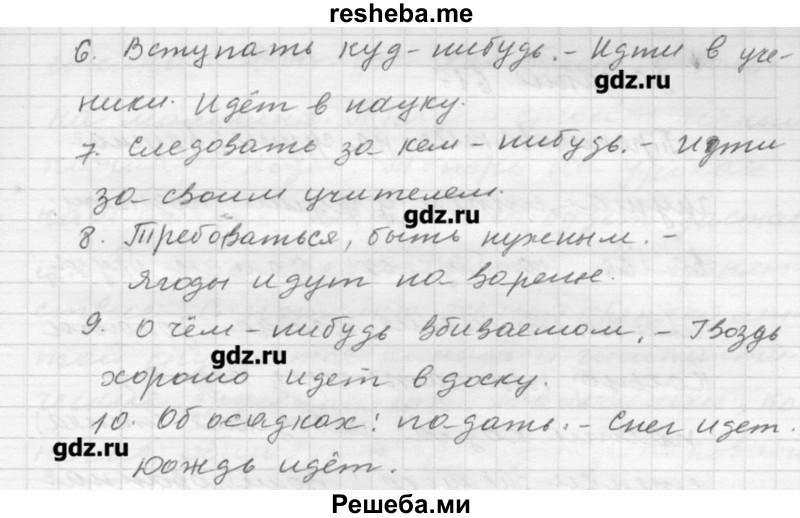 resheba.me
6. Вступать куд-нибудь. - Идти в уче-
gdz.ru
ники. Идёт в науку.
7. Следовать за кем-нибудь. - Идти
за своим учителем.
gdz.ru
8. Требоваться, быть нужным. -
Ягоды идут на варенье.
9. О чём-нибудь вбиваемом. - Гвоздь
gdz.ru
хорошо идёт в доску.
10. Об осадках: падать. - Снег идет.
gdz.ru
Дождь идёт.
Решеба.ми